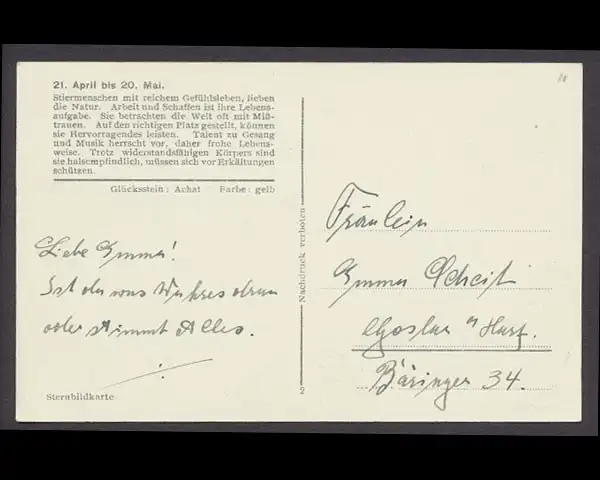 21. April bis 20. Mai.
Stiermenschen mit reichem Gefühlsleben, lieben
die Natur. Arbeit und Schaffen ist ihre Lebens-
aufgabe. Sie betrachten die Welt oft mit Miß-
trauen. Auf den richtigen Platz gestellt, können
sie Hervorragendes leisten. Talent zu Gesang
und Musik herrscht vor, daher frohe Lebens-
weise. Trotz widerstandsfähigen Körpers sind
sie halsempfindlich, müssen sich vor Erkältungen
schützen.
Glücksstein: Achat Farbe: gelb
Liebe Emma!
Ist da was Wahres dran
oder stimmt Alles.
Sternbildkarte
Nachdruck verboten
2
Fräulein
Emma Scheit
Goslar a/Harz.
Bäringer 34.